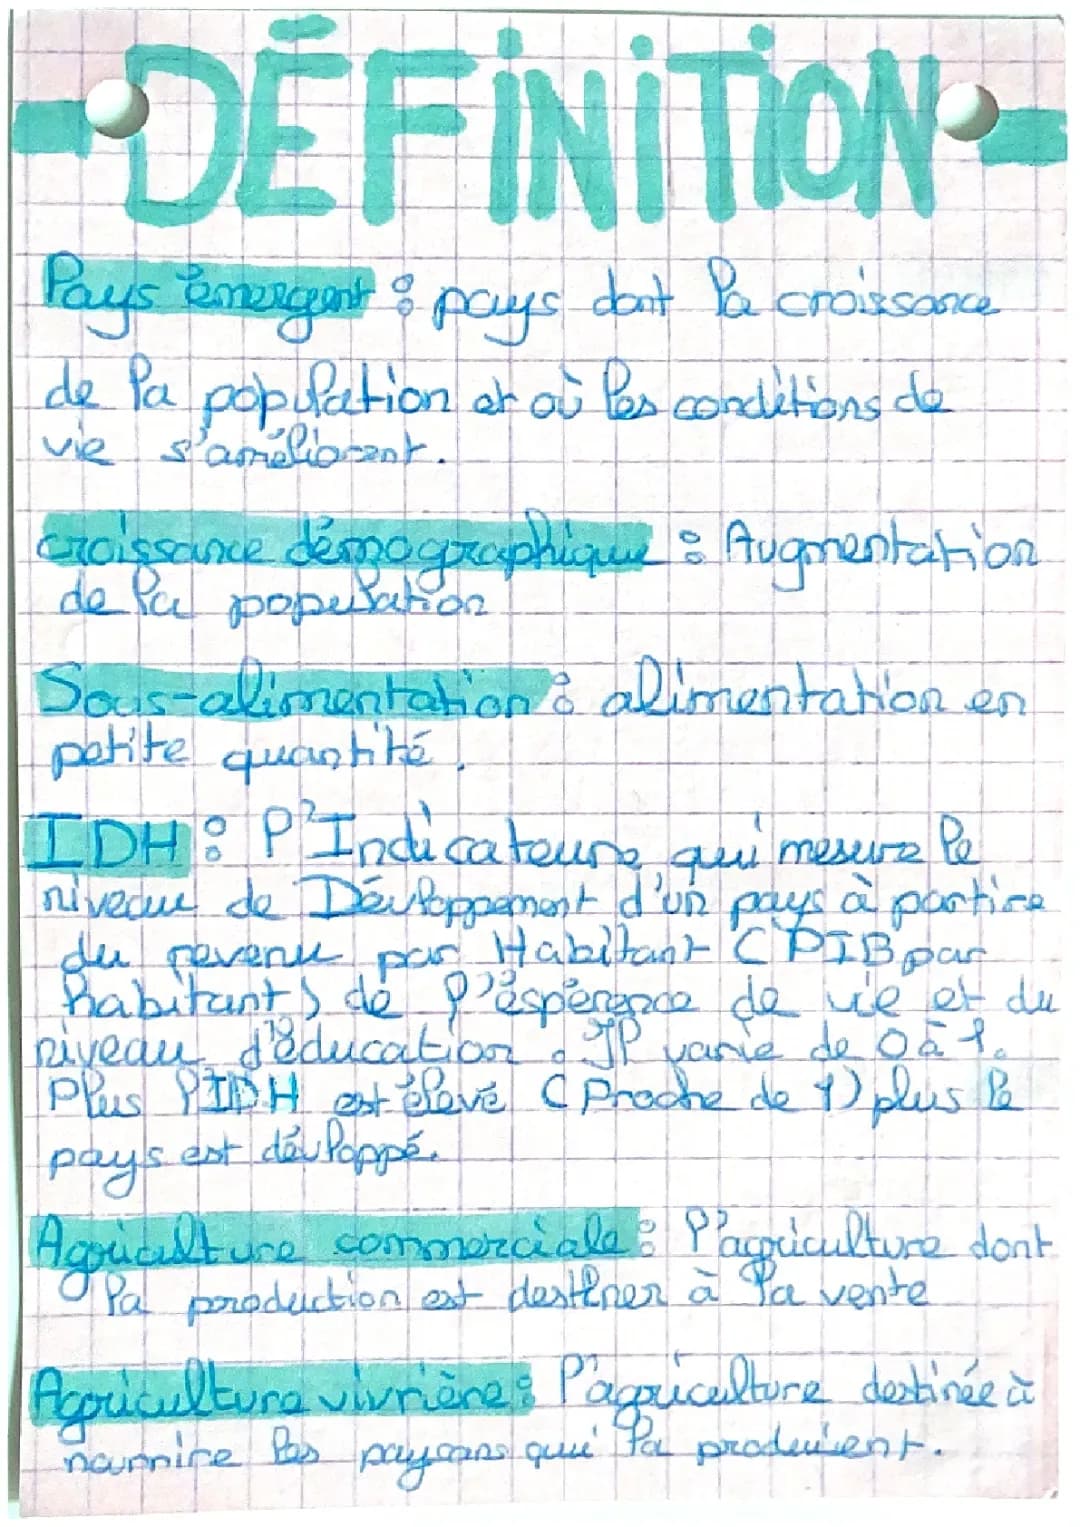 DÉFINITION
Pays émergent : pays dont la croissance
de la population et où les conditions de
vie s'améliorent.
croissance démographique : Augmentation
de la population
Sous-alimentation : alimentation en
petite quantité.
IDH : l'Indicateure qui mesure le
niveau de Dévloppement d'un pays à partire
du revenu par Habitant (PIB par
habitant) de l'éspérence de vie et du
niveau d'éducation. Il varie de 0 à 1.
Plus l'IDH est élevé (Proche de 1) plus le
pays est dévloppé.
Agriculture commerciale : l'agriculture dont
la production est destiner à la vente
Agriculture vivrière : l'agriculture destinée à
nourrire les paysans qui la produisent.